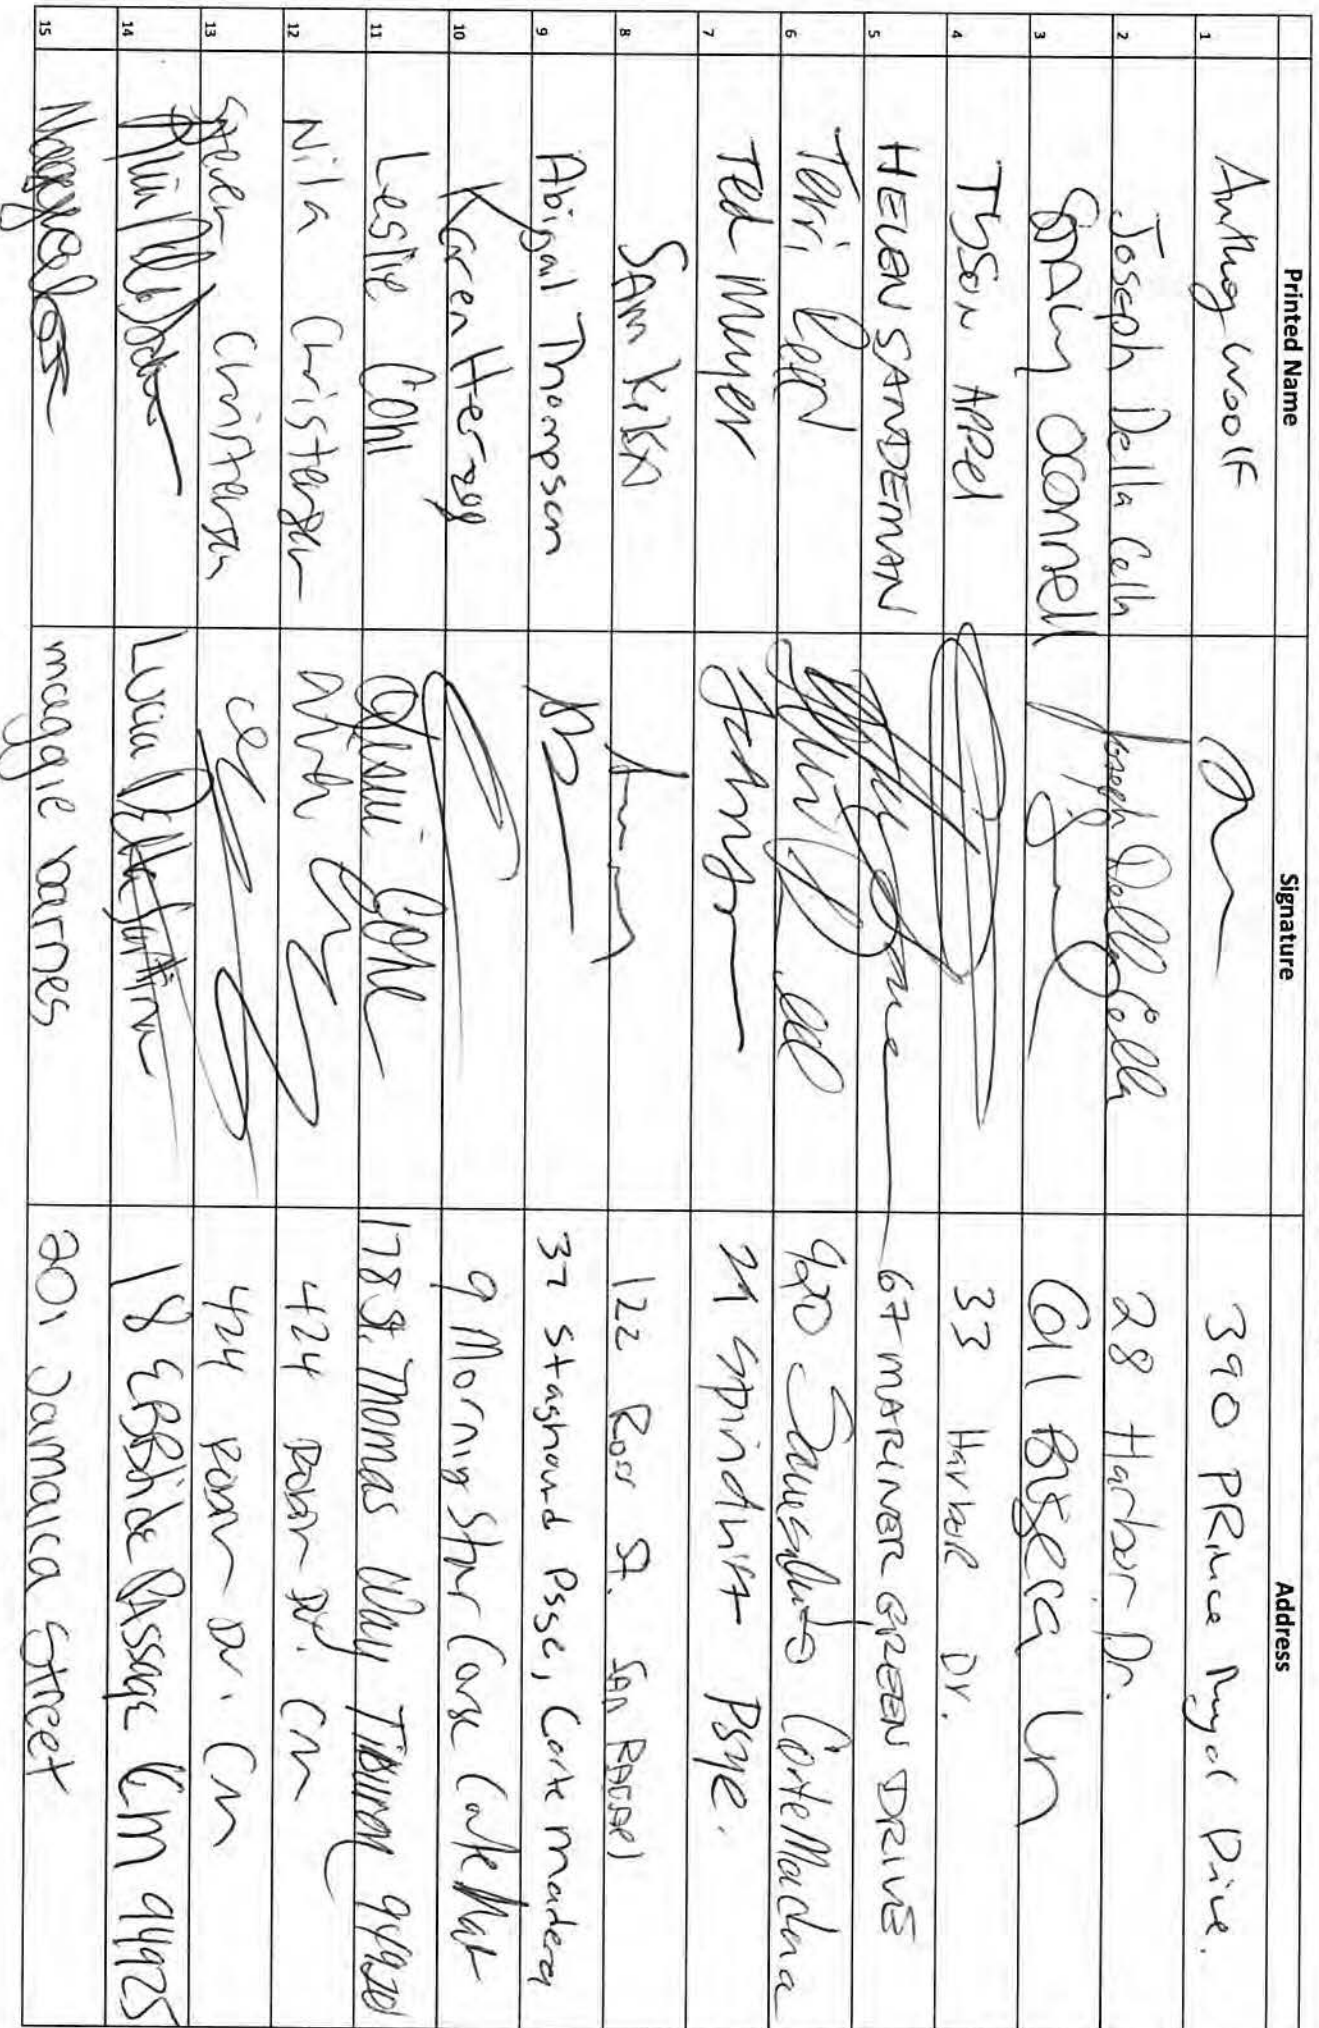 Printed Name Signature Address
1 Anthony Woolf 390 PRince Royal Drive.
2 Joseph Della Cella Joseph Della Cella 28 Harbor Dr.
3 OConnell Ln
4 Tyson Appel 33 Harbor Dr.
5 HELEN SANDEMAN 67 MARINER GREEN DRIVE
6 Teri 920 Corte Madera
7 Ted Meyer 21 Spindrift Psge.
8 SAM 122 Ross St. SAn RAFAEl
9 Abigail Thompson 37 Staghound Psse, Corte madera
10 Karen Herzog 9 Morning Star Corse Corte Mat
11 Leslie Gohl Leslie Gohl 178 St. Thomas Way Tiburon 94920
12 Nila Christensen 424 Robin Dr. CM
13 Steven Christensen 424 Robin Dr. CM
14 Lucia 18 EBBtide PAssage CM 94925
15 maggie barnes 201 Jamaica Street